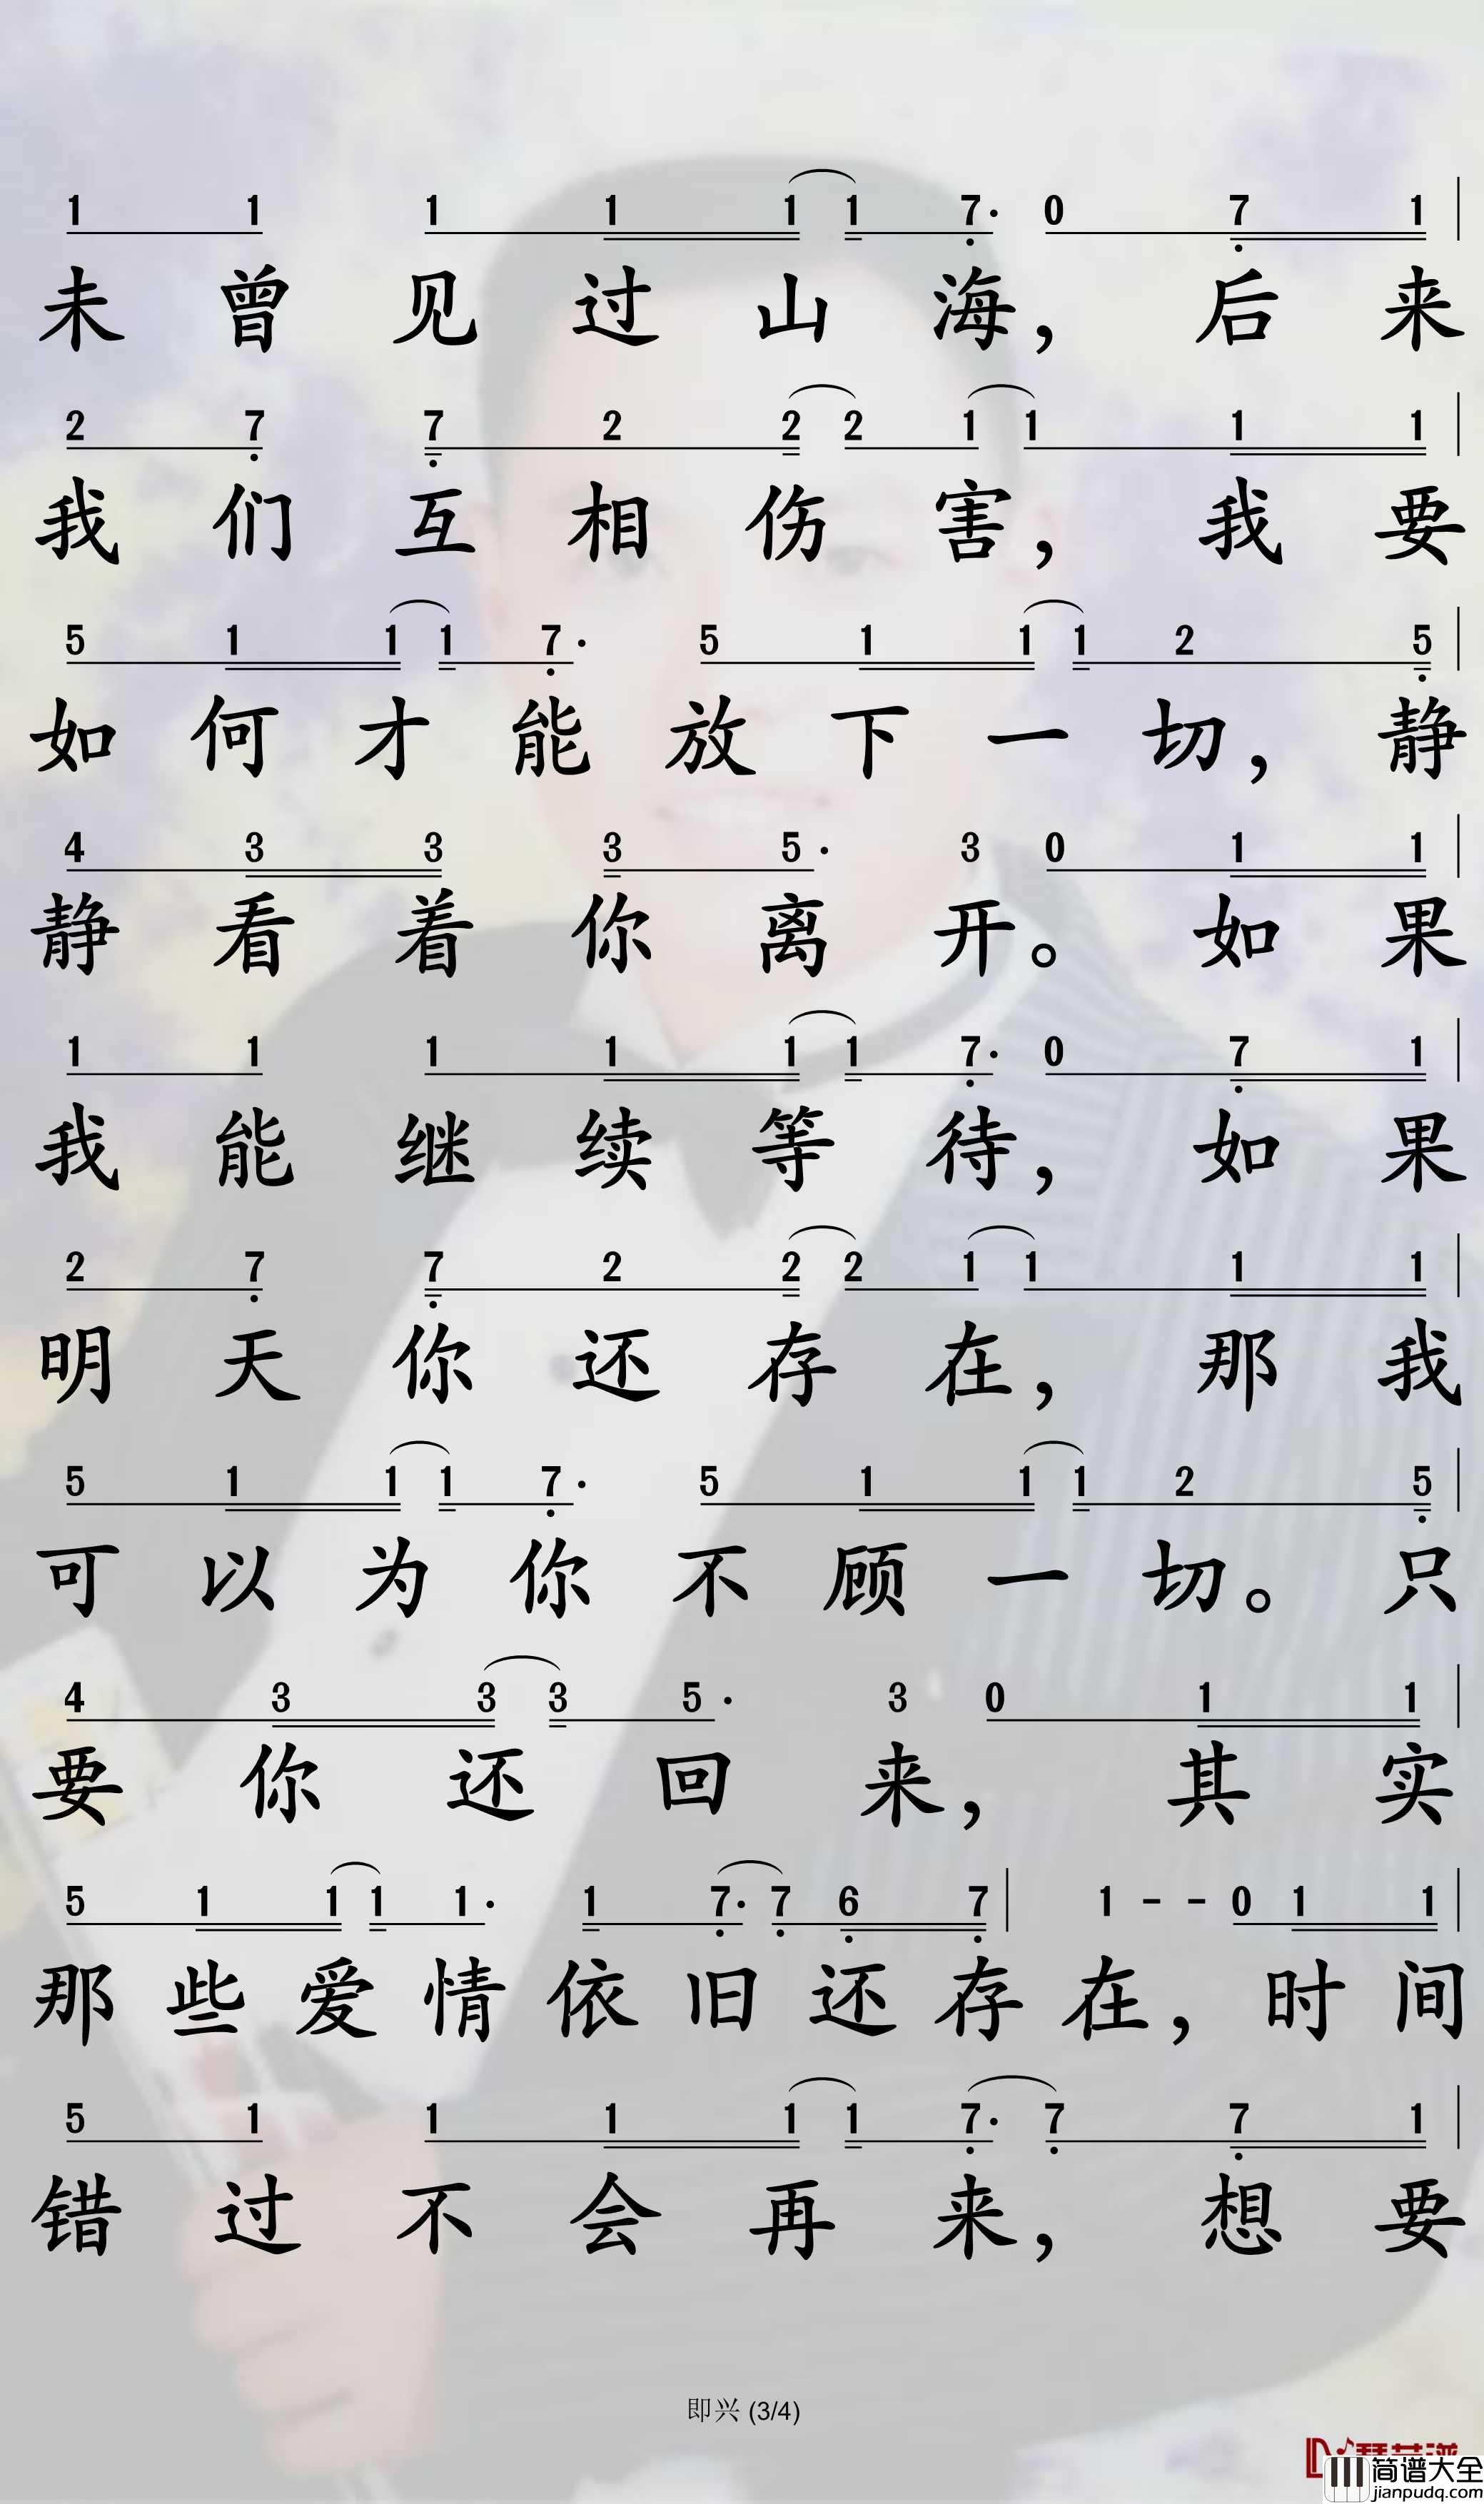 1 1 1 1 1 1 7· 0 7 1
未曾见过山海，后来
2 7 7 2 2 2 1 1 1 1
我们互相伤害，我要
5 1 1 1 7· 5 1 1 1 2 5
如何才能放下一切，静
4 3 3 3 5· 3 0 1 1
静看着你离开。如果
1 1 1 1 1 1 7· 0 7 1
我能继续等待，如果
2 7 7 2 2 2 1 1 1 1
明天你还存在，那我
5 1 1 1 7· 5 1 1 1 2 5
可以为你不顾一切。只
4 3 3 3 5· 3 0 1 1
要你还回来，其实
5 1 1 1 1· 1 7· 7 6 7 1 - - 0 1 1
那些爱情依旧还存在，时间
5 1 1 1 1 1 7· 7 7 1
错过不会再来，想要
即兴 (3/4)
简谱大全
jianpudq.com